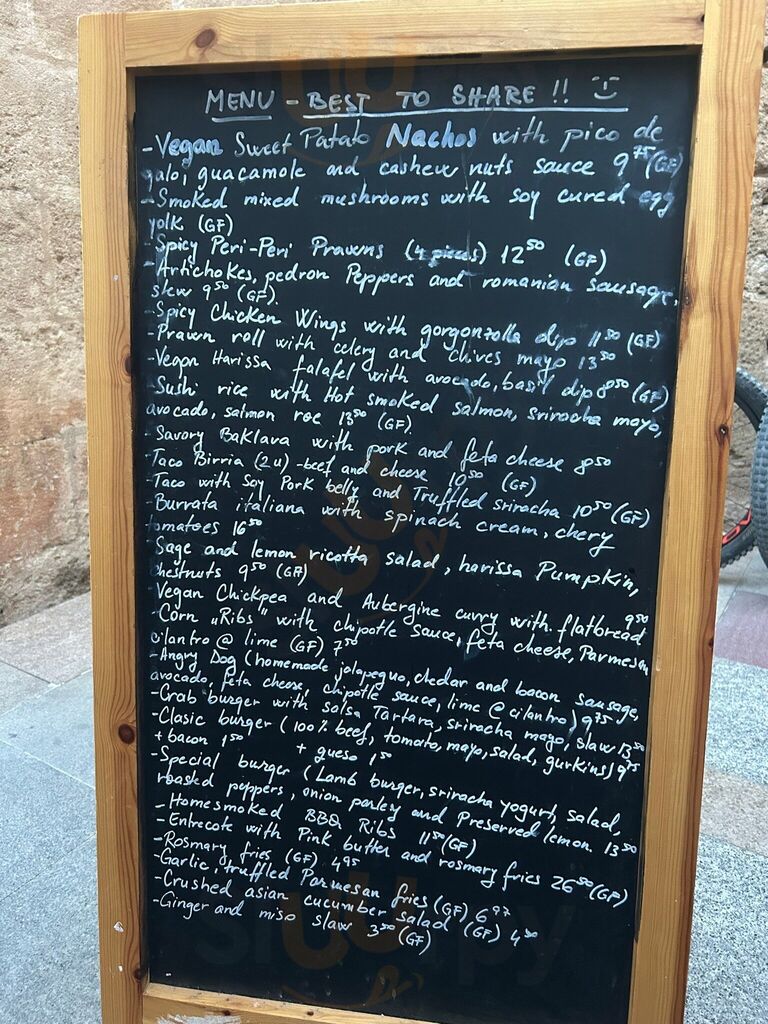 MENU - BEST TO SHARE !!
-Vegan Sweet Patato Nachos with pico de
galo, guacamole and cashew nuts sauce 9⁷⁵ (GF)
-Smoked mixed mushrooms with soy cured egg
yolk (GF)
-Spicy Peri-Peri Prawns (4 pieces) 12⁵⁰ (GF)
-Artichokes, pedron Peppers and romanian sausage,
slew 9⁵⁰ (GF)
-Spicy Chicken Wings with gorgonzolla dip 11⁵⁰ (GF)
-Prawn roll with celery and chives mayo 13⁵⁰
-Vegan Harissa falafel with avocado, basil dip 8⁵⁰ (GF)
-Sushi rice with Hot smoked salmon, sriracha mayo,
avocado, salmon roe 13⁵⁰ (GF)
-Savory Baklava with pork and feta cheese 8⁵⁰
Taco Birria (2u) -beef and cheese 10⁵⁰ (GF)
-Taco with Soy Pork belly and Truffled sriracha 10⁵⁰ (GF)
-Burrata italiana with spinach cream, chery
tomatoes 16⁵⁰
-Sage and lemon ricotta salad, harissa Pumpkin,
chestnuts 9⁵⁰ (GF)
-Vegan Chickpea and Aubergine curry with flatbread 9⁵⁰
-Corn „Ribs" with chipotle sauce, feta cheese, Parmesan
cilantro @ lime (GF) 7⁵⁰
-Angry Dog (homemade jalapeguo, chedar and bacon sausage,
avocado, feta cheese, chipotle sauce, lime @ cilantro) 9⁷⁵
-Crab burger with salsa Tartara, sriracha mayo, slaw 13⁵⁰
-Clasic burger (100% beef, tomato, mayo, salad, gurkins) 9⁷⁵
+ bacon 1⁵⁰ + gueso 1⁵⁰
-Special burger (Lamb burger, sriracha yogurt, salad,
roasted peppers, onion parley and Preserved lemon 13⁵⁰
-Homesmoked BBQ Ribs 11⁵⁰ (GF)
-Entrecote with Pink butter and rosmary fries 26⁵⁰ (GF)
-Rosmary fries (GF) 4⁹⁵
-Garlic, truffled Parmesan fries (GF) 6⁹⁷
-Crushed asian cucumber salad (GF) 4⁵⁰
-Ginger and miso slaw 3⁵⁰ (GF)